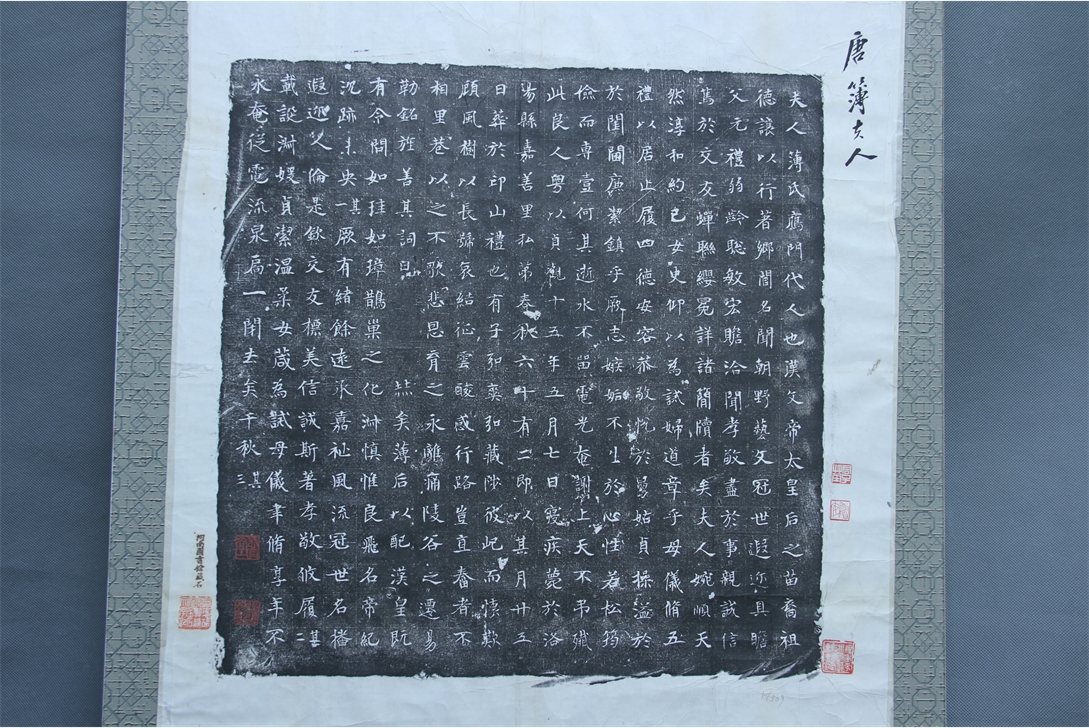 唐簿夫人
夫人薄氏鴈門代人也漢文帝太皇后之苗裔祖
德讓以行著鄉閭名聞朝野藝文冠世遐迩具瞻
父元禮弱齡聡敏宏瞻洽聞孝敬盡於事親誠信
篤於交友蟬聯纓冕詳諸簡牘者矣夫人婉順天
然淳和約己女史仰以為試婦道章乎母儀脩五
禮以居止履四德安容恭敬於舅姑貞操溢於
於閨閫廉絜鎮乎厥志嫉妬不生於心性若松筠
儉而專壹何其逝水不留電光奄謝上天不弔殱
此良人粤以貞觀十五年五月七日寑疾薨於洛
陽縣嘉善里私第春秋六十有二即以其月廿三
日葬於邙山禮也有子弘奕弘藏陟彼屺而懷歎
顧風樹以長號哀結征雲酸感行路豈直舂者不
相里巷以之不歌悲恩育之永離痛陵谷之遷易
勒銘旌善其詞曰 矣薄后以配漢皇既
有令問如珪如璋鵲巢之化淋慎惟良飛名帝紀
沉跡未央其一厥有緒餘遠承嘉祉風流冠世名播
遐迩人倫是欽交友摽美信誠斯著孝敬攸履其二
載誕淋媛貞潔温柔女葴為試母儀聿脩享年不
永奄從電流泉扃一閇去矣千秋其三
河南圖書館藏石